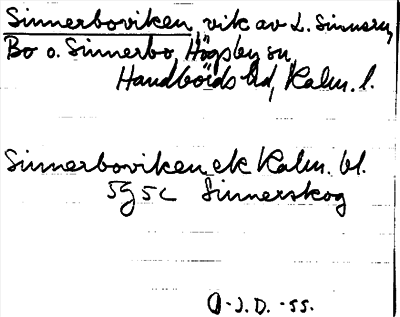 Sinnerboviken, vik av L. Sinnern,
Bo o. Sinnerbo, Högsby sn,
Handbörds hd, Kalm. l.
Sinnerboviken ek Kalm. bl.
5g5c Sinnerskog
O.J.D. -55.